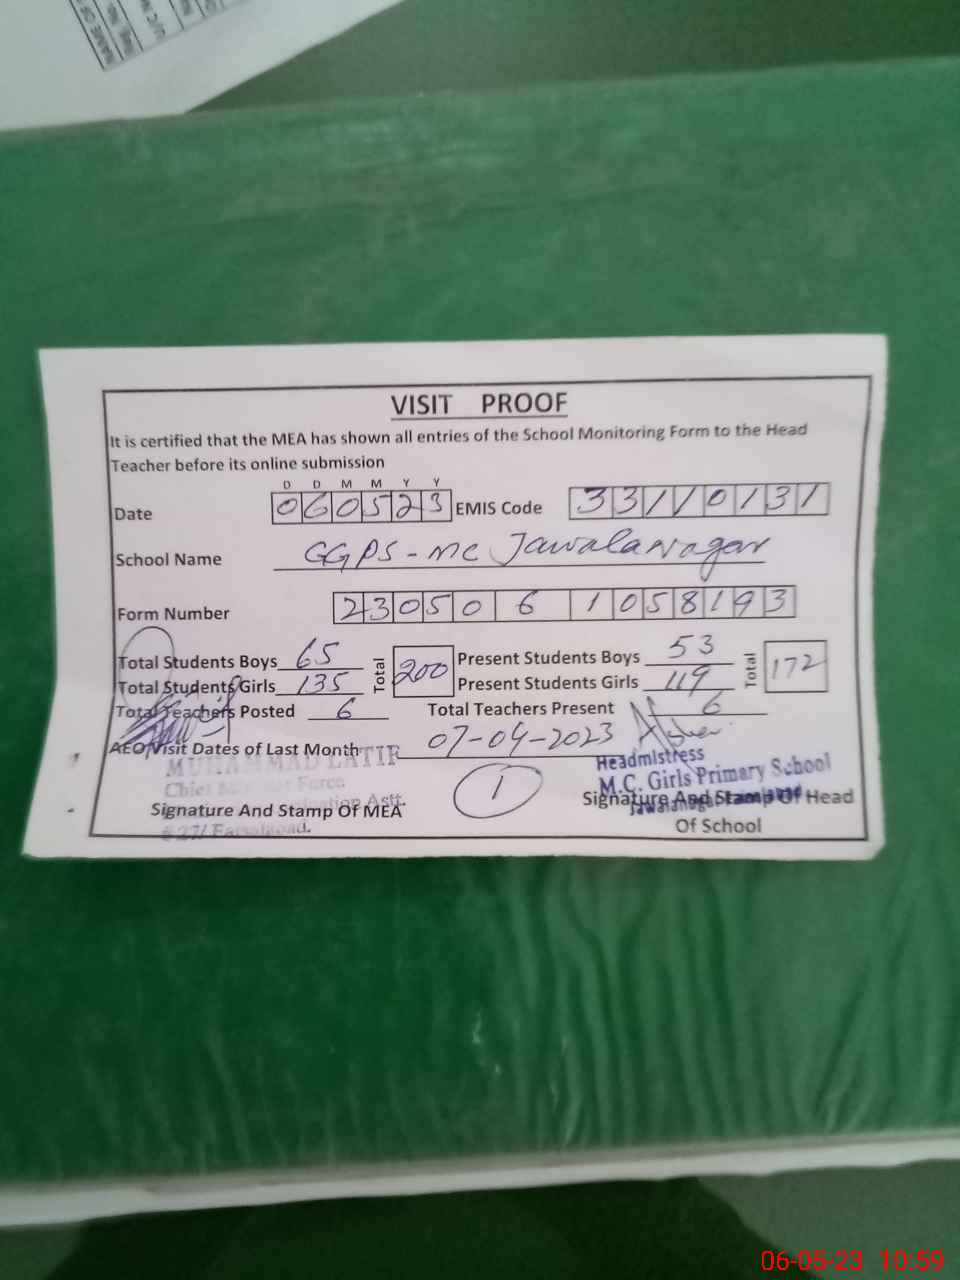 NAME OF
VISIT PROOF
It is certified that the MEA has shown all entries of the School Monitoring Form to the Head
Teacher before its online submission
D D M M Y Y
Date 060523 EMIS Code 33110131
School Name GGPS-MC Jawalanagar
Form Number 23050 6 1058193
Total Students Boys 65 Total 200 Present Students Boys 53 Total 172
Total Students Girls 135 Present Students Girls 119
Total Teachers Posted 6 Total Teachers Present 6
AEO Visit Dates of Last Month 07-04-2023
MUHAMMAD LATIF
Headmistress
M.C. Girls Primary School
1
Signature And Stamp Of MEA Signature And Stamp Of Head
Of School
06-05-23 10:59